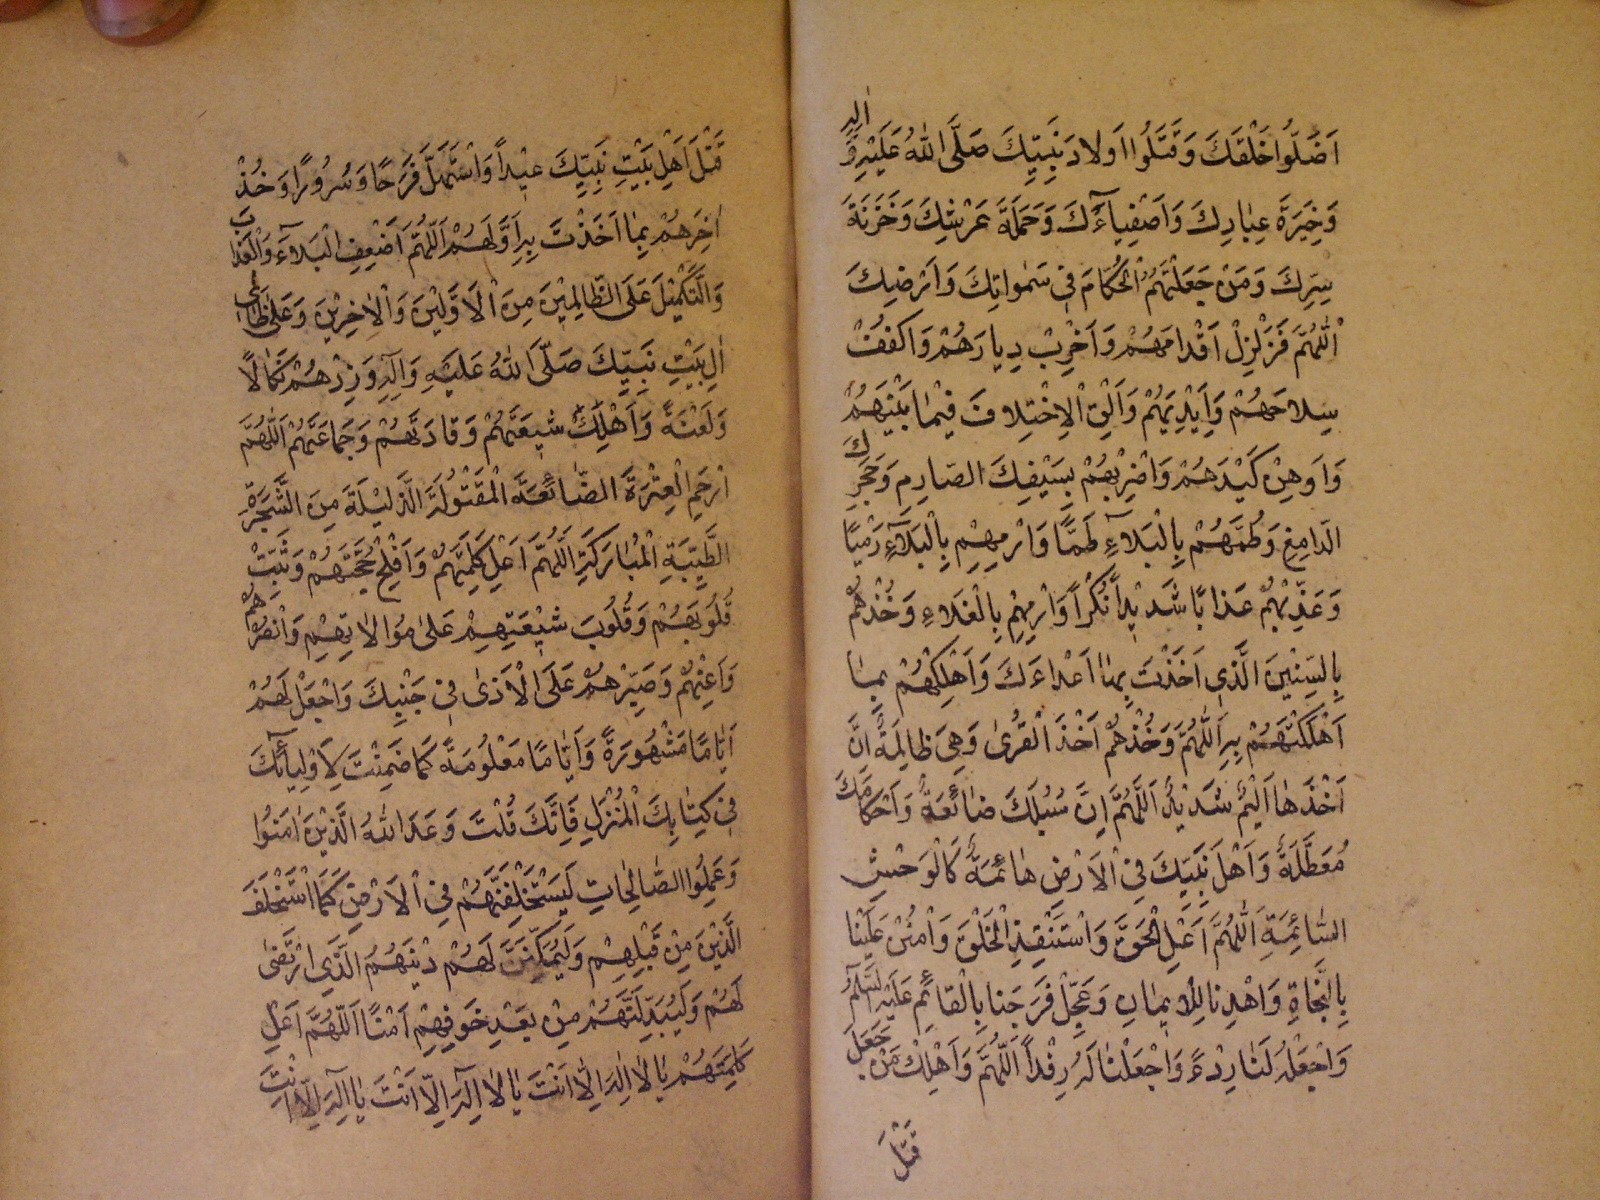 اَضَلُّوا خَلْقَكَ وَقَتَلُوا اَولادَ نَبِيِّكَ صَلَّى اللهُ عَلَيْهِ وَ اٰلِهِ
وَخِيَرَةَ عِبٰادِكَ وَاَصْفِيٰآءَكَ وَحَمَلَةَ عَرْشِكَ وَخَزَنَةَ
سِرِّكَ وَمَنْ جَعَلْتَهُمُ الْحُكّٰامَ فِى سَمٰواتِكَ وَاَرْضِكَ
اَللّٰهُمَّ فَزَلْزِلْ اَقْدامَهُمْ وَاَخْرِبْ دِيارَهُمْ وَاكْفُفْ
سِلاحَهُمْ وَاَيْدِيَهُمْ وَاَلْقِ الْاِخْتِلافَ فِيْمٰا بَيْنَهُمْ
وَاَوْهِنْ كَيْدَهُمْ وَاضْرِبْهُمْ بِسَيْفِكَ الصّارِمِ وَحَجَرِكَ
الدّامِغِ وَطُمَّهُمْ بِالْبَلآءِ طَمًّا وَارْمِهِمْ بِالْبَلآءِ رَمْيًا
وَعَذِّبْهُمْ عَذابًا شَدِيْداً نُكْراً وَارْمِهِمْ بِالْغَلاءِ وَخُذْهُمْ
بِالسِّنِيْنَ الَّذِى اَخَذْتَ بِهٰا اَعْداءَكَ وَاَهْلِكْهُمْ بِمٰا
اَهْلَكْتَهُمْ بِهِ اَللّٰهُمَّ وَخُذْهُمْ اَخْذَ الْقُرٰى وَهِىَ ظالِمَةٌ اِنَّ
اَخْذَهٰا اَلِيْمٌ شَدِيْدٌ اَللّٰهُمَّ اِنَّ سُبُلَكَ ضٰائِعَةٌ وَاَحْكامَكَ
مُعَطَّلَةٌ وَاَهْلَ نَبِيِّكَ فِى الْاَرْضِ هٰائِمَةٌ كَالْوَحْشِ
السّٰائِمَةِ اَللّٰهُمَّ اَعْلِ الْحَقَّ وَاسْتَنْقِذِ الْخَلْقَ وَامْنُنْ عَلَيْنا
بِالنَّجٰاةِ وَاهْدِنا لِلْاِيمٰانِ وَعَجِّلْ فَرَجَنا بِالْقائِمِ عَلَيْهِ السَّلٰمُ
وَاجْعَلْهُ لَنٰا رِدْءً وَاجْعَلْنٰا لَهُ رِفْداً اَللّٰهُمَّ وَاَهْلِكْ مَنْ جَعَلَ
قَتْلَ
قَتْلَ اَهْلِ بَيْتِ نَبِيِّكَ عِيْداً وَاسْتَهَلَّ فَرَحًا وَسُرُورًا وَخُذْ
اٰخِرَهُمْ بِمٰا اَخَذْتَ بِهِ اَوَّلَهُمْ اَللّٰهُمَّ اَضْعِفِ الْبَلآءَ وَالْعَذابَ
وَالتَّنْكِيْلَ عَلَى الظّٰالِمِيْنَ مِنَ الْاَوَّلِيْنَ وَالْاٰخِرِيْنَ وَعَلٰى ظٰالِمِى
اٰلِ بَيْتِ نَبِيِّكَ صَلَّى اللهُ عَلَيْهِ وَاٰلِهِ وَزِدْهُمْ نَكٰالًا
وَلَعْنَةً وَاَهْلِكْ شِيْعَتَهُمْ وَقادَتَهُمْ وَجَماعَتَهُمْ اَللّٰهُمَّ
ارْحَمِ الْعِتْرَةَ الضّٰائِعَةَ الْمَقْتُولَةَ الذَّلِيْلَةَ مِنَ الشَّجَرَةِ
الطَّيِّبَةِ الْمُبٰارَكَةِ اَللّٰهُمَّ اَعْلِ كَلِمَتَهُمْ وَاَفْلِحْ حُجَّتَهُمْ وَثَبِّتْ
قُلُوبَهُمْ وَقُلُوبَ شِيْعَتِهِمْ عَلٰى مُوَالاتِهِمْ وَانْصُرْهُمْ
وَاَعِنْهُمْ وَصَبِّرْهُمْ عَلَى الْاَذٰى فِى جَنْبِكَ وَاجْعَلْ لَهُمْ
اَيّٰامًا مَشْهُورَةً وَاَيّٰامًا مَعْلُومَةً كَمٰا ضَمِنْتَ لِاَوْلِيٰآئِكَ
فِى كِتٰابِكَ الْمُنْزَلِ فَاِنَّكَ قُلْتَ وَعَدَ اللهُ الَّذِيْنَ اٰمَنُوا
وَعَمِلُوا الصّٰالِحٰاتِ لَيَسْتَخْلِفَنَّهُمْ فِى الْاَرْضِ كَمَا اسْتَخْلَفَ
الَّذِيْنَ مِنْ قَبْلِهِمْ وَلَيُمَكِّنَنَّ لَهُمْ دِيْنَهُمُ الَّذِى ارْتَضٰى
لَهُمْ وَلَيُبَدِّلَنَّهُمْ مِنْ بَعْدِ خَوفِهِمْ اَمْنًا اَللّٰهُمَّ اَعْلِ
كَلِمَتَهُمْ يٰا لٰا اِلٰهَ اِلّٰا اَنْتَ يٰا لٰا اِلٰهَ اِلّٰا اَنْتَ يٰا لٰا اِلٰهَ اِلّٰا اَنْتَ